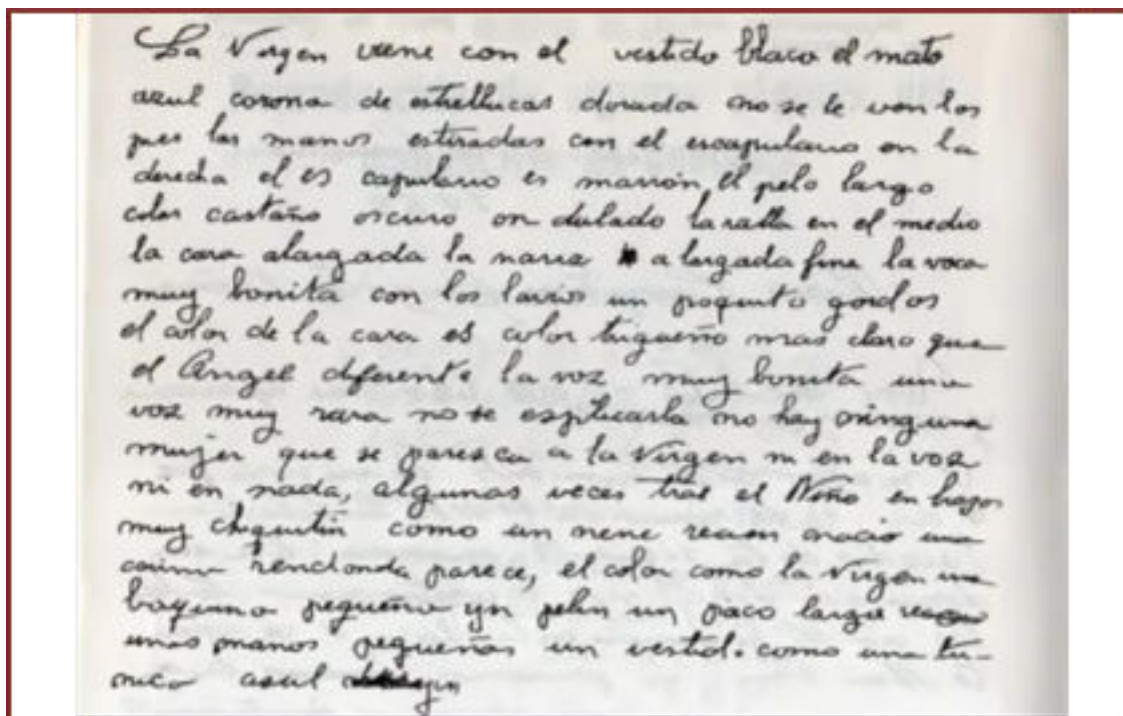 La Virgen viene con el vestido blaco el mato
azul corona de estrellucas dorada no se le ven los
pies las manos estiradas con el escapulario en la
derecha el es capulario es marrón, el pelo largo
color castaño oscuro on dulado la ralla en el medio
la cara alargada la nariz alargada fina la voca
muy bonita con los lavios un poquito gordos
el color de la cara es color trigueño mas claro que
el Angel diferente la voz muy bonita una
voz muy rara no se esplicarla no hay ninguna
mujer que se paresca a la Virgen ni en la voz
ni en nada, algunas veces trae el Niño en brazos
muy chiquitin como un nene recien nacio una
carina rendonda parece, el color como la Virgen una
boquina pequeña y pelin un poco largo
unas manos pequeñas un vestido como una tu-
nica asul